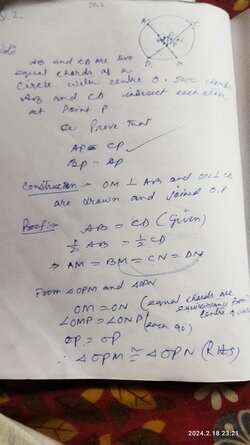 A C
O
P
B D
AB and CD are two
equal chords of a
circle with centre O. Two chords
AB and CD intersect each other
at Point P.
Prove that
AP = CP
BP = DP
Construction:- OM ⊥ AB and ON ⊥ CD
are drawn and joined O.P
Proof:- AB = CD (Given)
1/2 AB = 1/2 CD
⇒ AM = BM = CN = DN
From △OPM and △OPN
OM = ON (equal chords are
equidistance from
centre
∠OMP = ∠ONP (each 90°
OP = OP
∴ △OPM ≅ △OPN (RHS)
2024.2.18 23:21